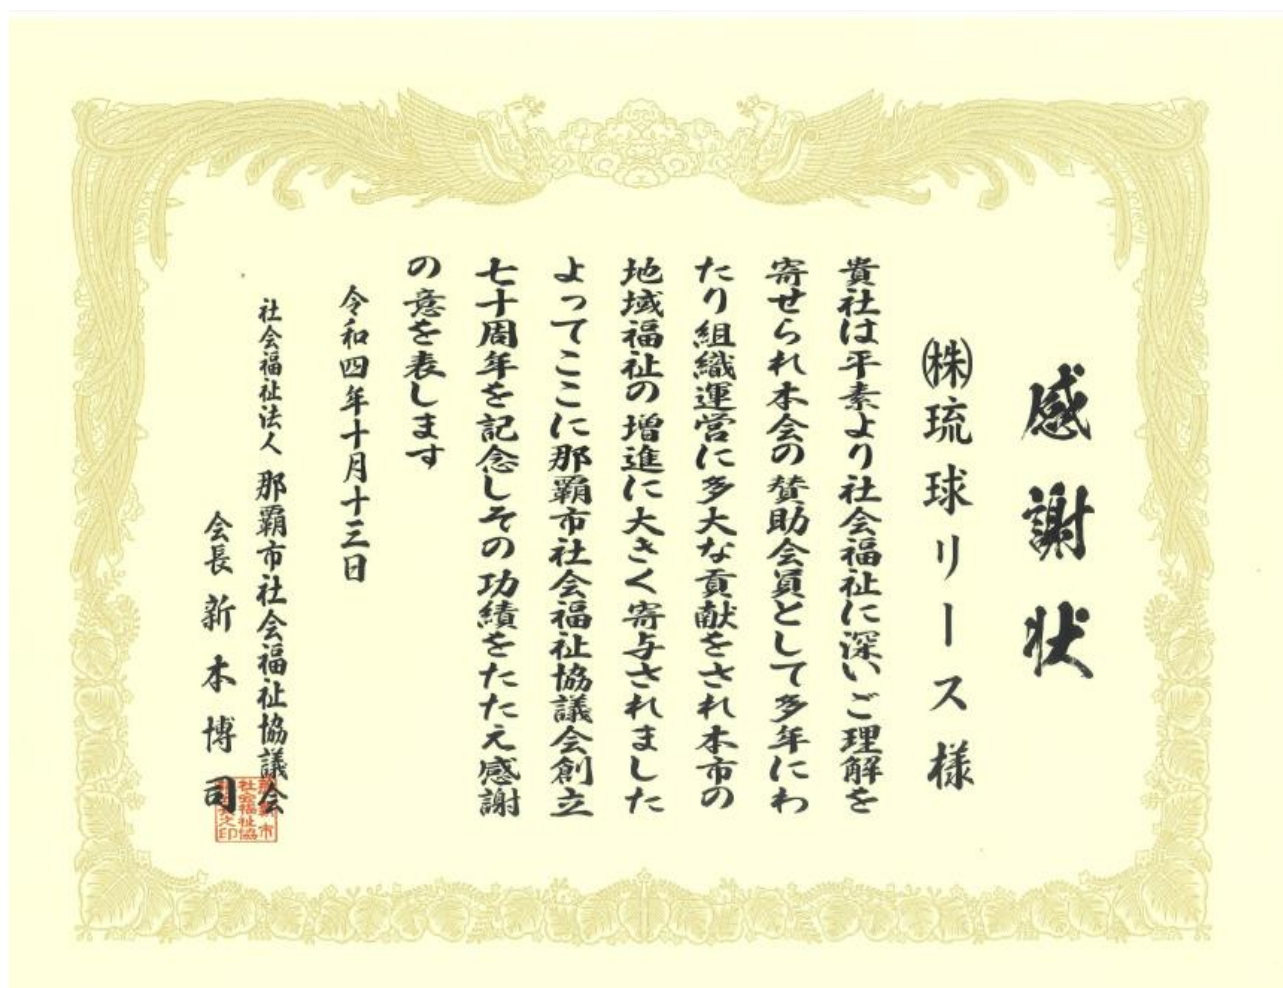 感謝状
㈱琉球リース様
貴社は平素より社会福祉に深いご理解を
寄せられ本会の賛助会員として多年にわ
たり組織運営に多大な貢献をされ本市の
地域福祉の増進に大きく寄与されました
よってここに那覇市社会福祉協議会創立
七十周年を記念しその功績をたたえ感謝
の意を表します
令和四年十月十三日
社会福祉法人 那覇市社会福祉協議会
会長 新本博司